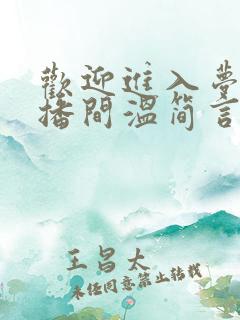 歡迎進入夢
播間溫簡言
王昌太
未经同意禁止转载